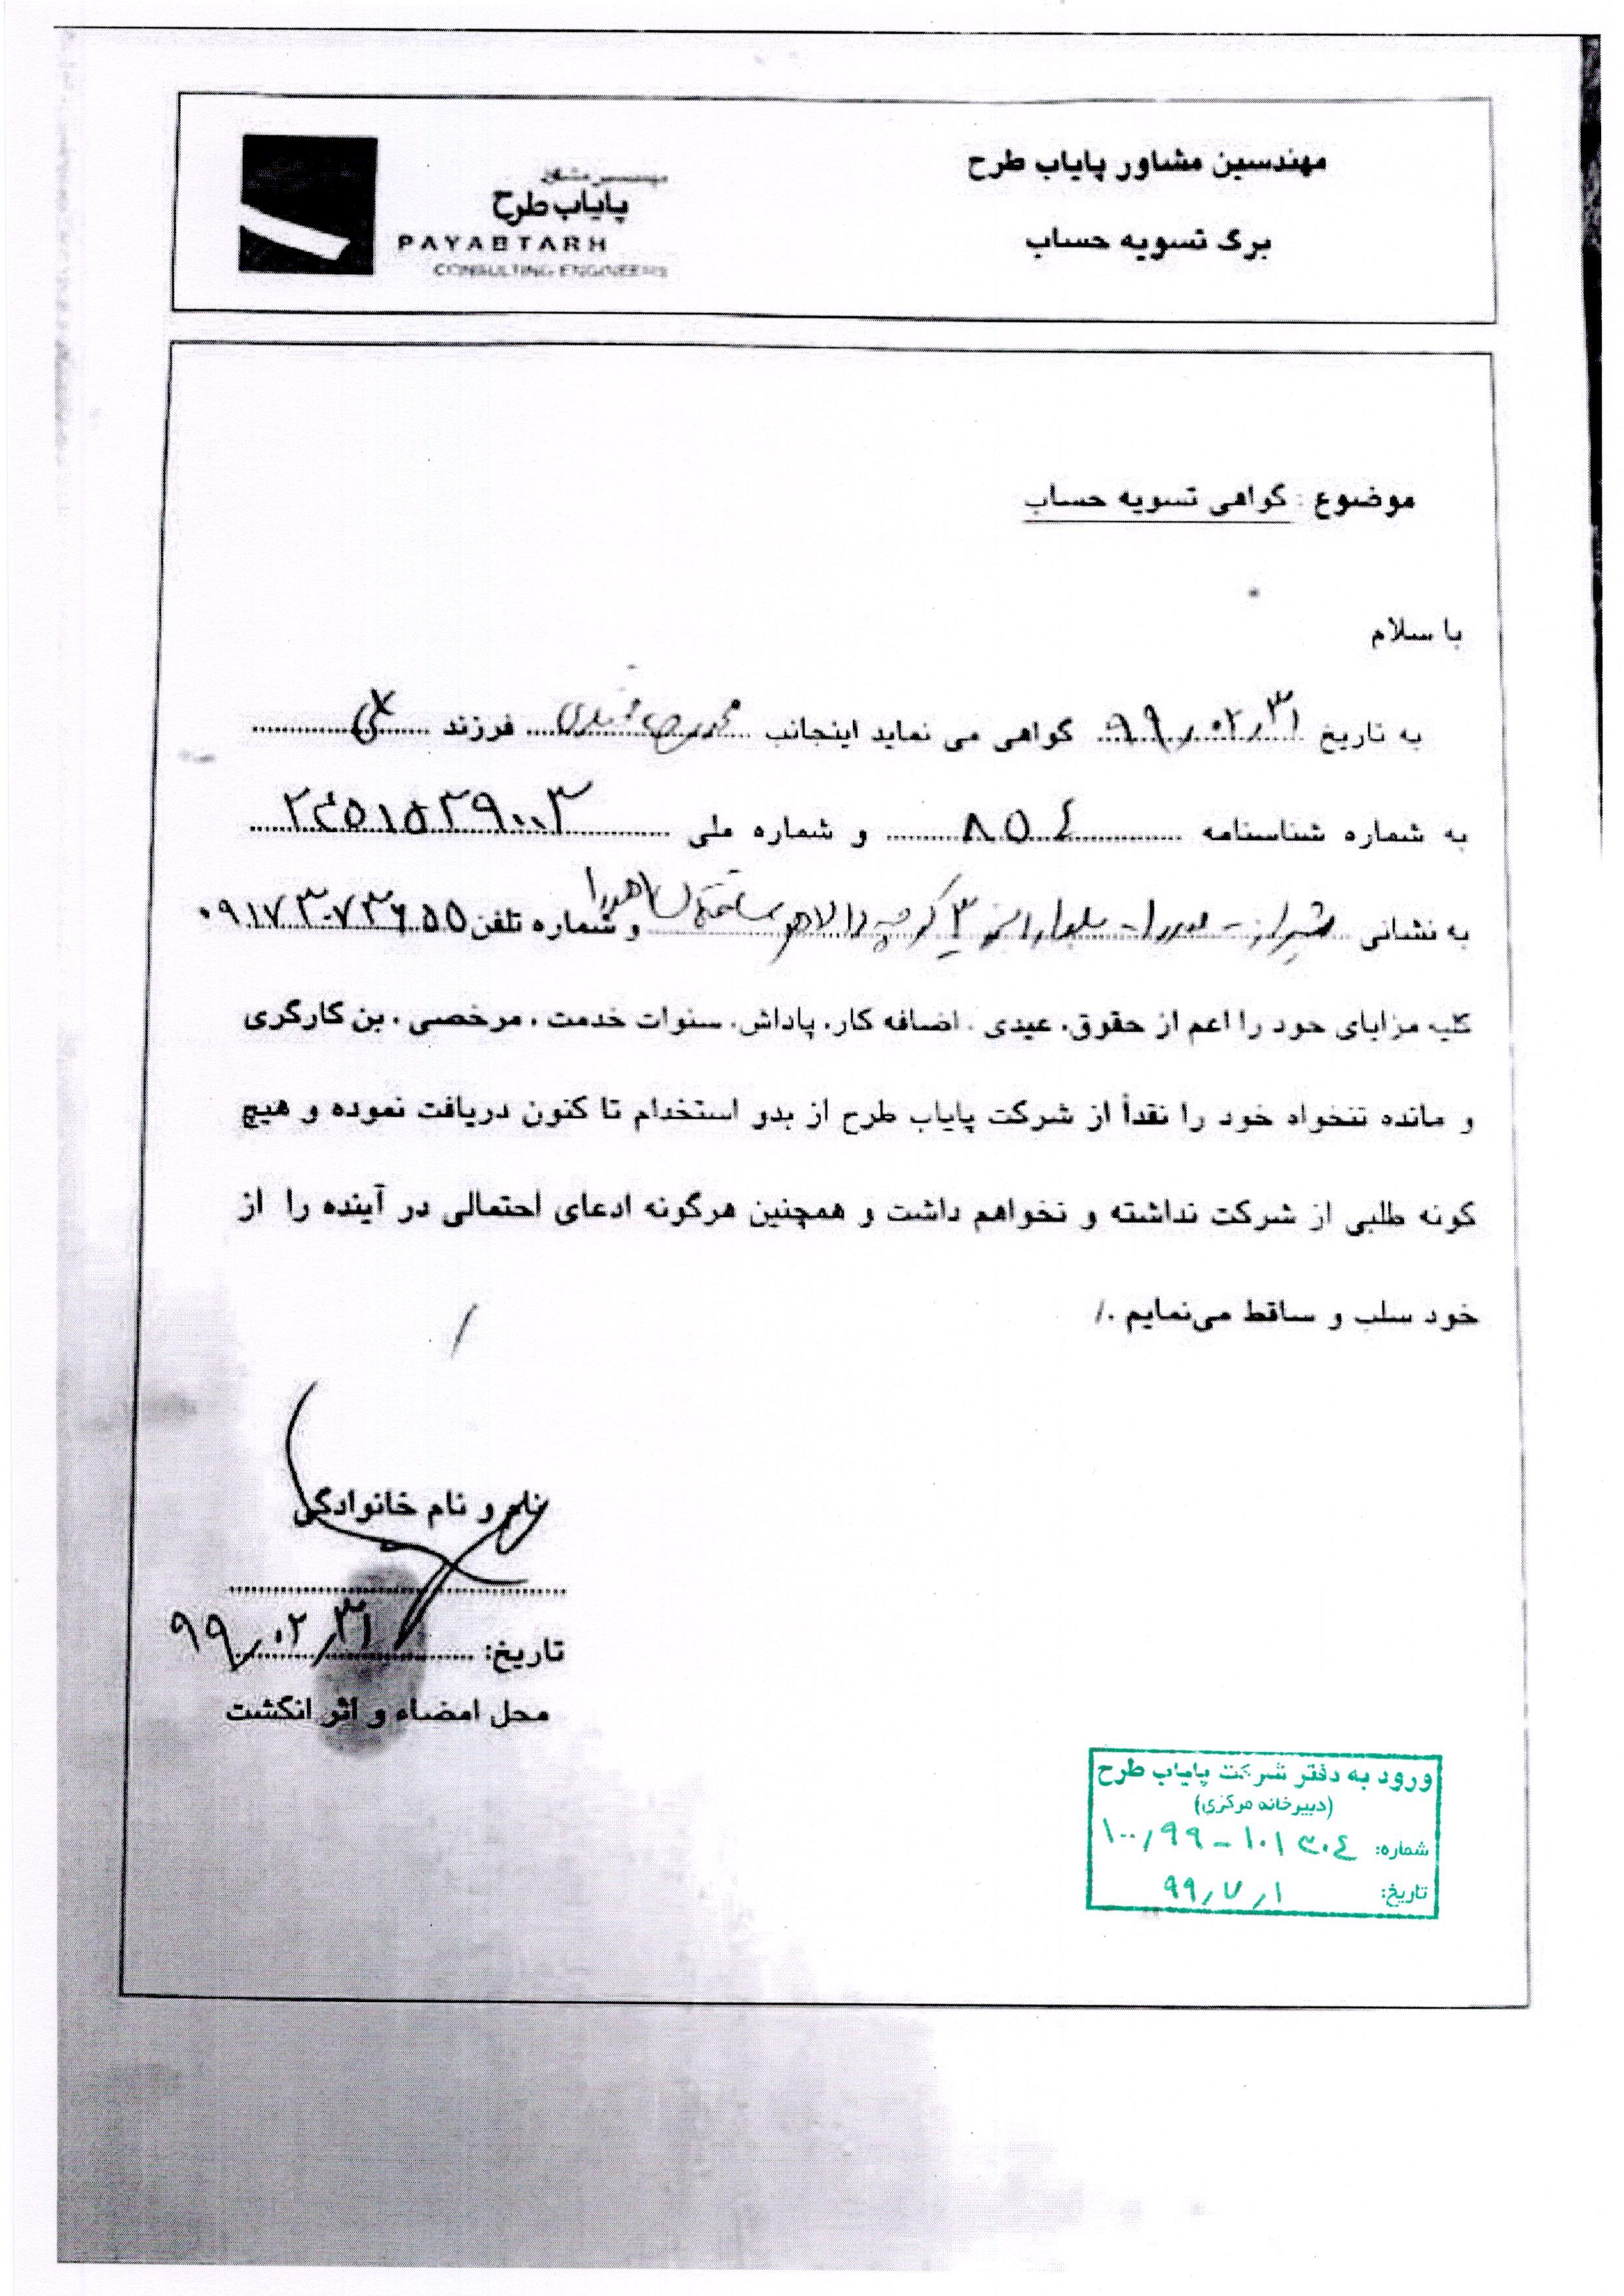 مهندسین مشاور پایاب طرح
برگ تسویه حساب
مهندسین مشاور
پایاب طرح
PAYABTARH
CONSULTING ENGINEERS
موضوع : گواهی تسویه حساب
با سلام
به تاریخ ۹۹/۰۲/۳۱ گواهی می نماید اینجانب محمدرضا فرزند علی
به شماره شناسنامه ۸۵۴ و شماره ملی ۲۴۵۱۵۳۹۰۰۳
به نشانی شیراز - صدرا - بلوار ۳ کوچه لاله و شماره تلفن ۰۹۱۷۳۰۷۳۶۵۵
کلیه مزایای خود را اعم از حقوق، عیدی، اضافه کار، پاداش، سنوات خدمت، مرخصی، بن کارگری
و مانده تنخواه خود را نقداً از شرکت پایاب طرح از بدو استخدام تا کنون دریافت نموده و هیچ
گونه طلبی از شرکت نداشته و نخواهم داشت و همچنین هرگونه ادعای احتمالی در آینده را از
خود سلب و ساقط می‌نمایم ./
نام و نام خانوادگی
تاریخ: ۹۹/۰۲/۳۱
محل امضاء و اثر انگشت
ورود به دفتر شرکت پایاب طرح
(دبیرخانه مرکزی)
شماره: ۱۰۰/۹۹-۱۰۱۳۰۴
تاریخ: ۹۹/۷/۱